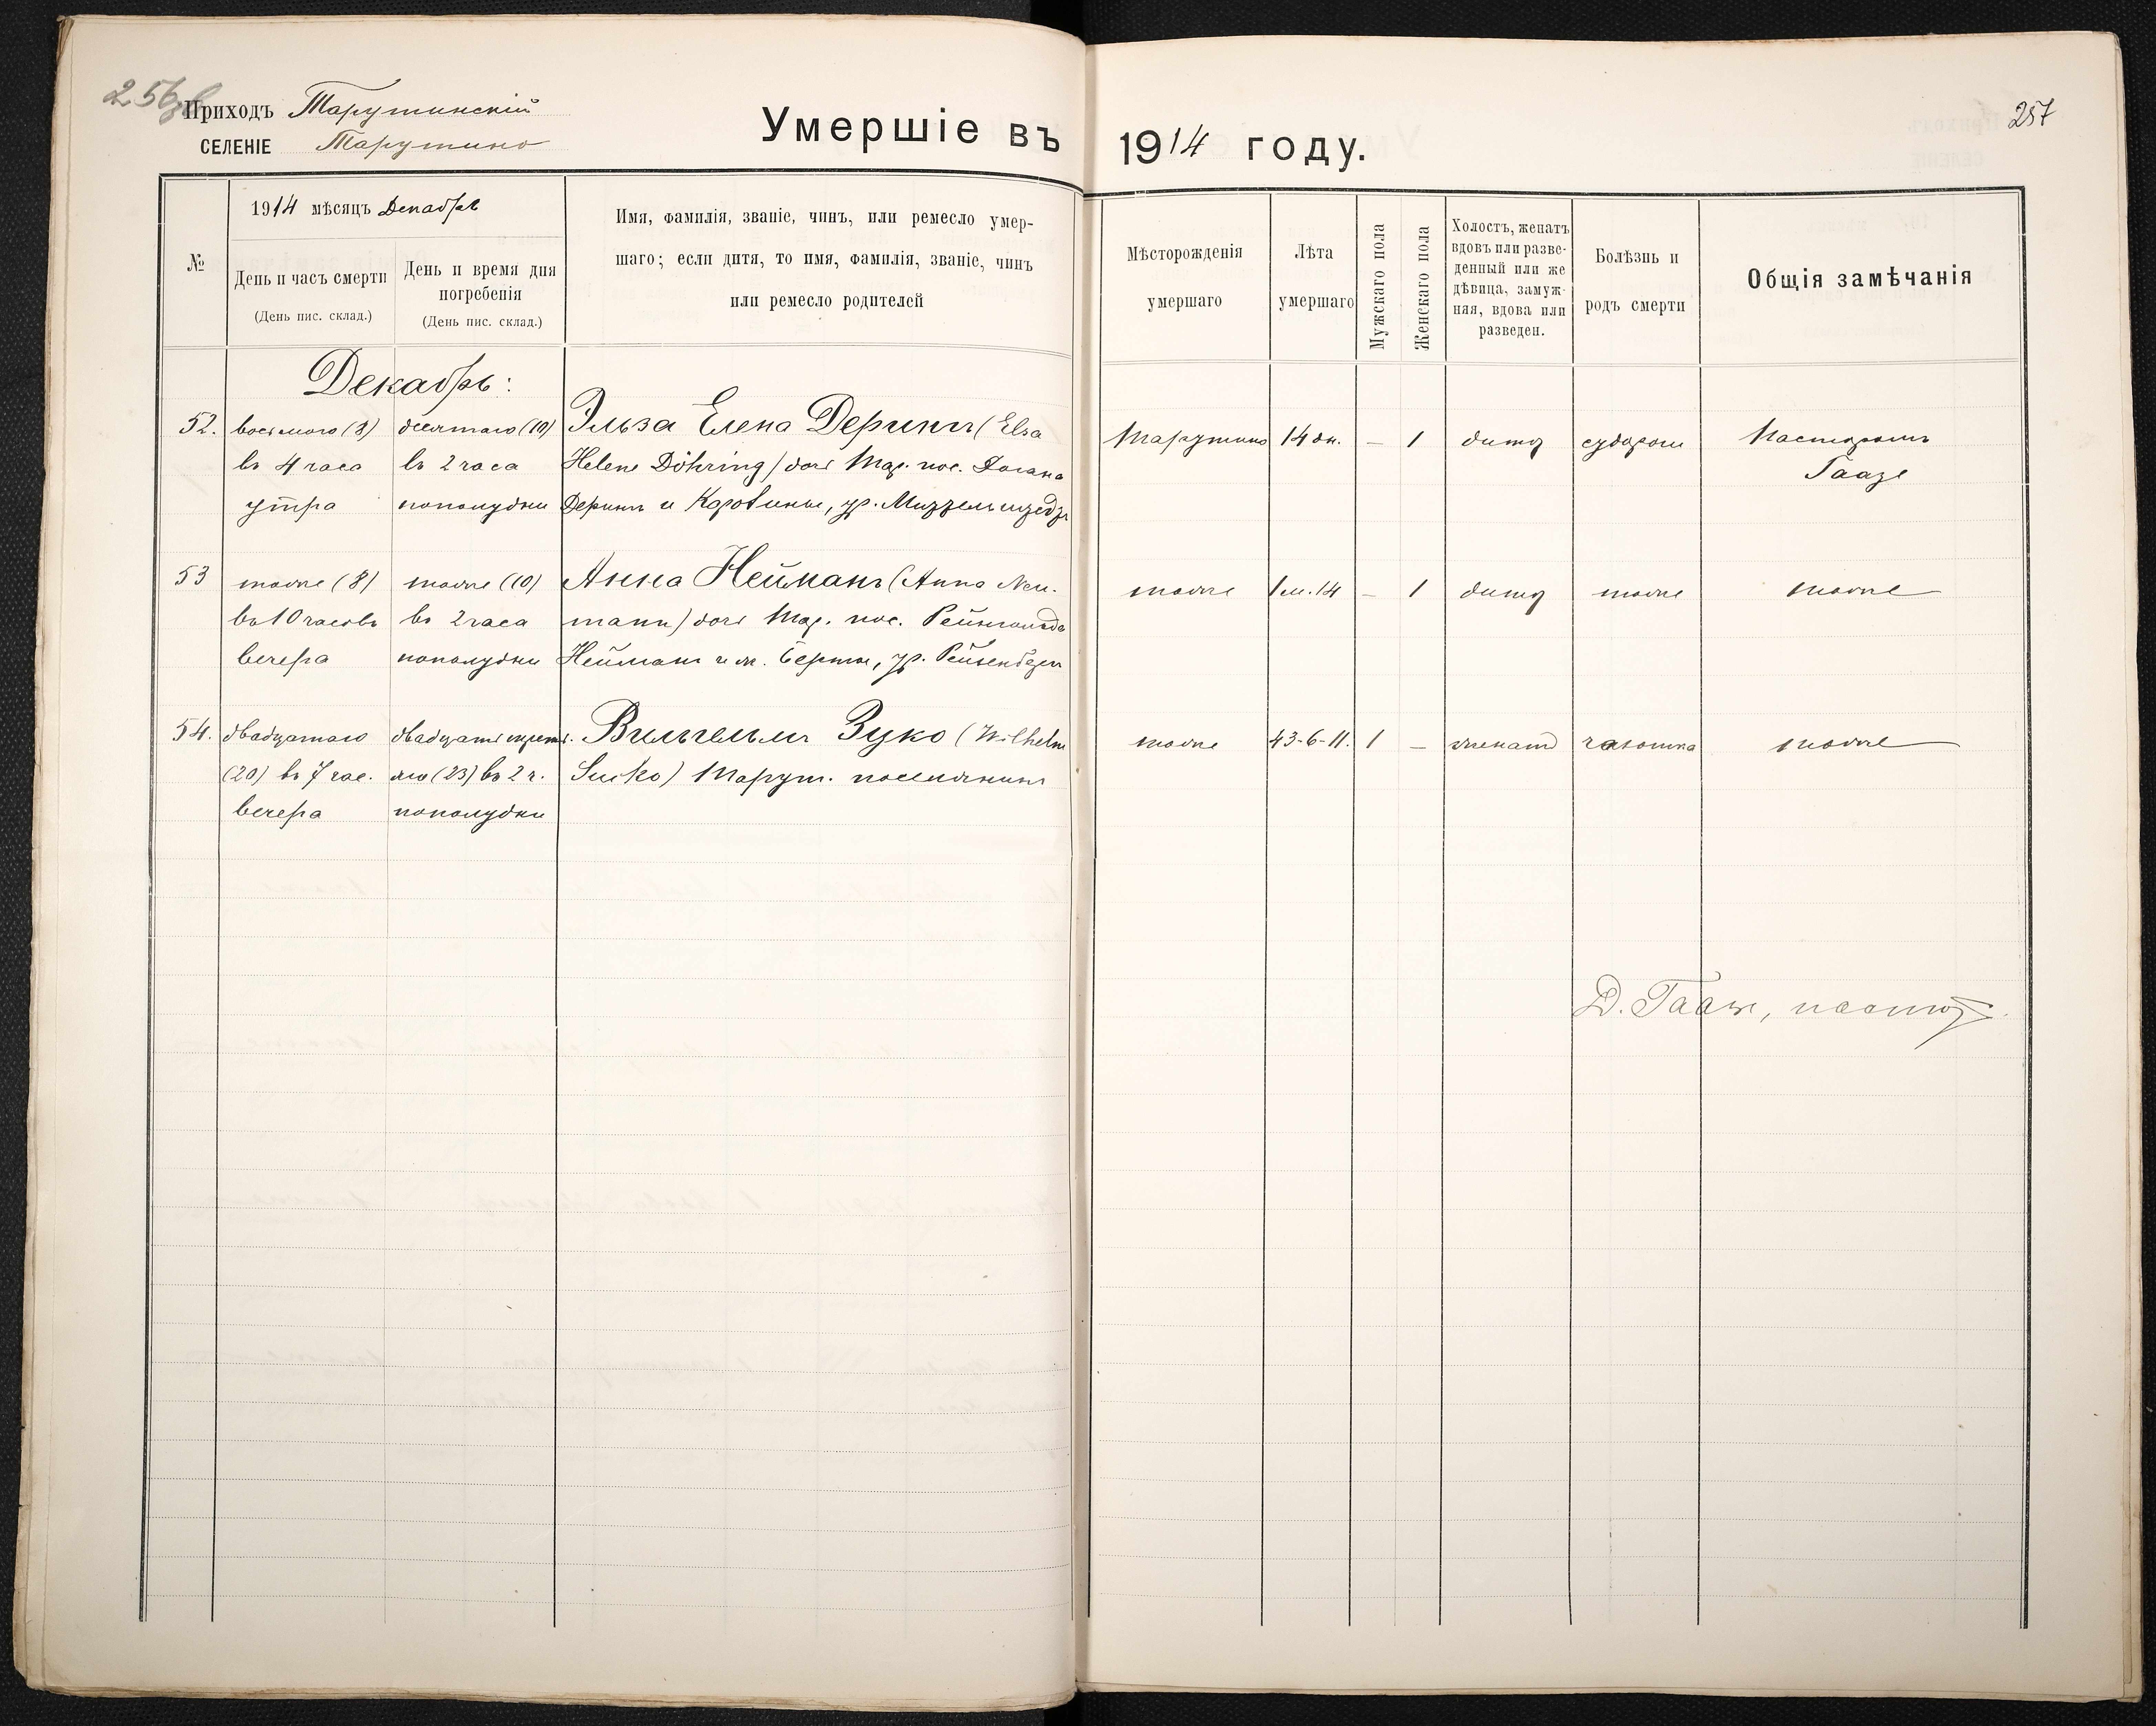 Приходъ Тарутинскій
СЕЛЕНІЕ Тарутино
Умершіе въ 1914 году.
257
№
1914 мѣсяцъ Декабрь
День и часъ смерти
(День пис. склад.)
День и время дня
погребенія
(День пис. склад.)
Имя, фамилія, званіе, чинъ, или ремесло умер-
шаго; если дитя, то имя, фамилія, званіе, чинъ
или ремесло родителей
Мѣсторожденія
умершаго
Лѣта
умершаго
Мужскаго пола
Женскаго пола
Холостъ, женатъ
вдовъ или разве-
денный или же
дѣвица, замуж-
няя, вдова или
разведен.
Болѣзнь и
родъ смерти
Общія замѣчанія
Декабрь:
52.
восьмого (8)
въ 4 часа
утра
десятаго (10)
въ 2 часа
пополудни
Эльза Елена Дерингъ (Elsa
Helene Döhring) дочь Тар. пос. Іогана
Дерингъ и Каролины, ур.
Тарутино
14 дн.
—
1
дитя
судороги
Пасторомъ
Гаазе
53
тоже (8)
въ 10 часовъ
вечера
тоже (10)
въ 2 часа
пополудни
Анна Нейманъ (Anna Neu-
mann) дочь Тар. пос. Рейнгольда
Нейманъ и ж. Берты, ур.
тоже
1 м. 14
—
1
дитя
тоже
тоже
54.
двадцатаго
(20) въ 7 час.
вечера
двадцать треть-
яго (23) въ 2 ч.
пополудни
Вильгельмъ Зуко (Wilhelm
Sucko) Тарут. поселянинъ
тоже
43-6-11.
1
—
женатъ
чахотка
тоже
Д. Гаазе, пастор